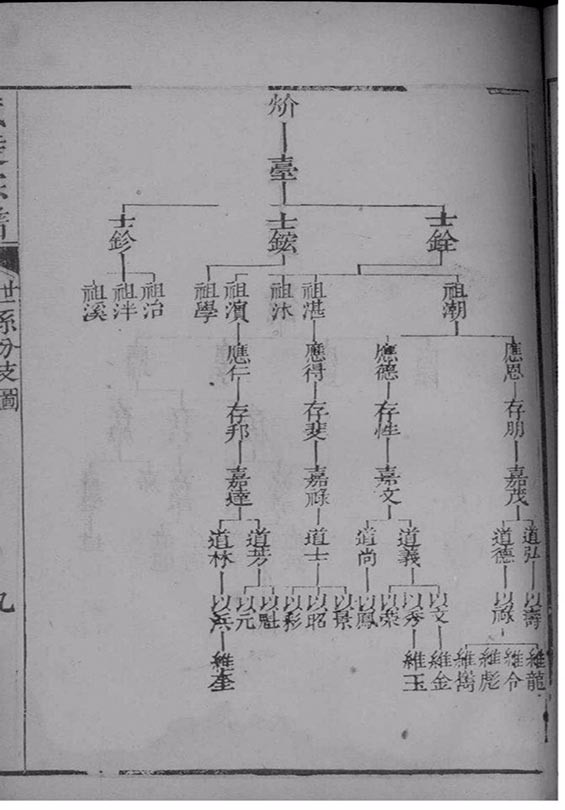 炌
臺
士銓 士鋐 士鉁
祖潮 祖湛 祖沐 祖濵 祖學 祖治 祖泮 祖溪
應恩 應德 應得 應仁
存朋 存性 存斐 存邦
嘉茂 嘉文 嘉祿 嘉達
道弘 道德 道義 道尚 道士 道芳 道林
以壽 以祿 以文 以秀 以榮 以鳳 以景 以昭 以彩 以魁 以元 以兵
維龍 維令 維彪 維 維金 維玉 維奎
世系分支圖
九